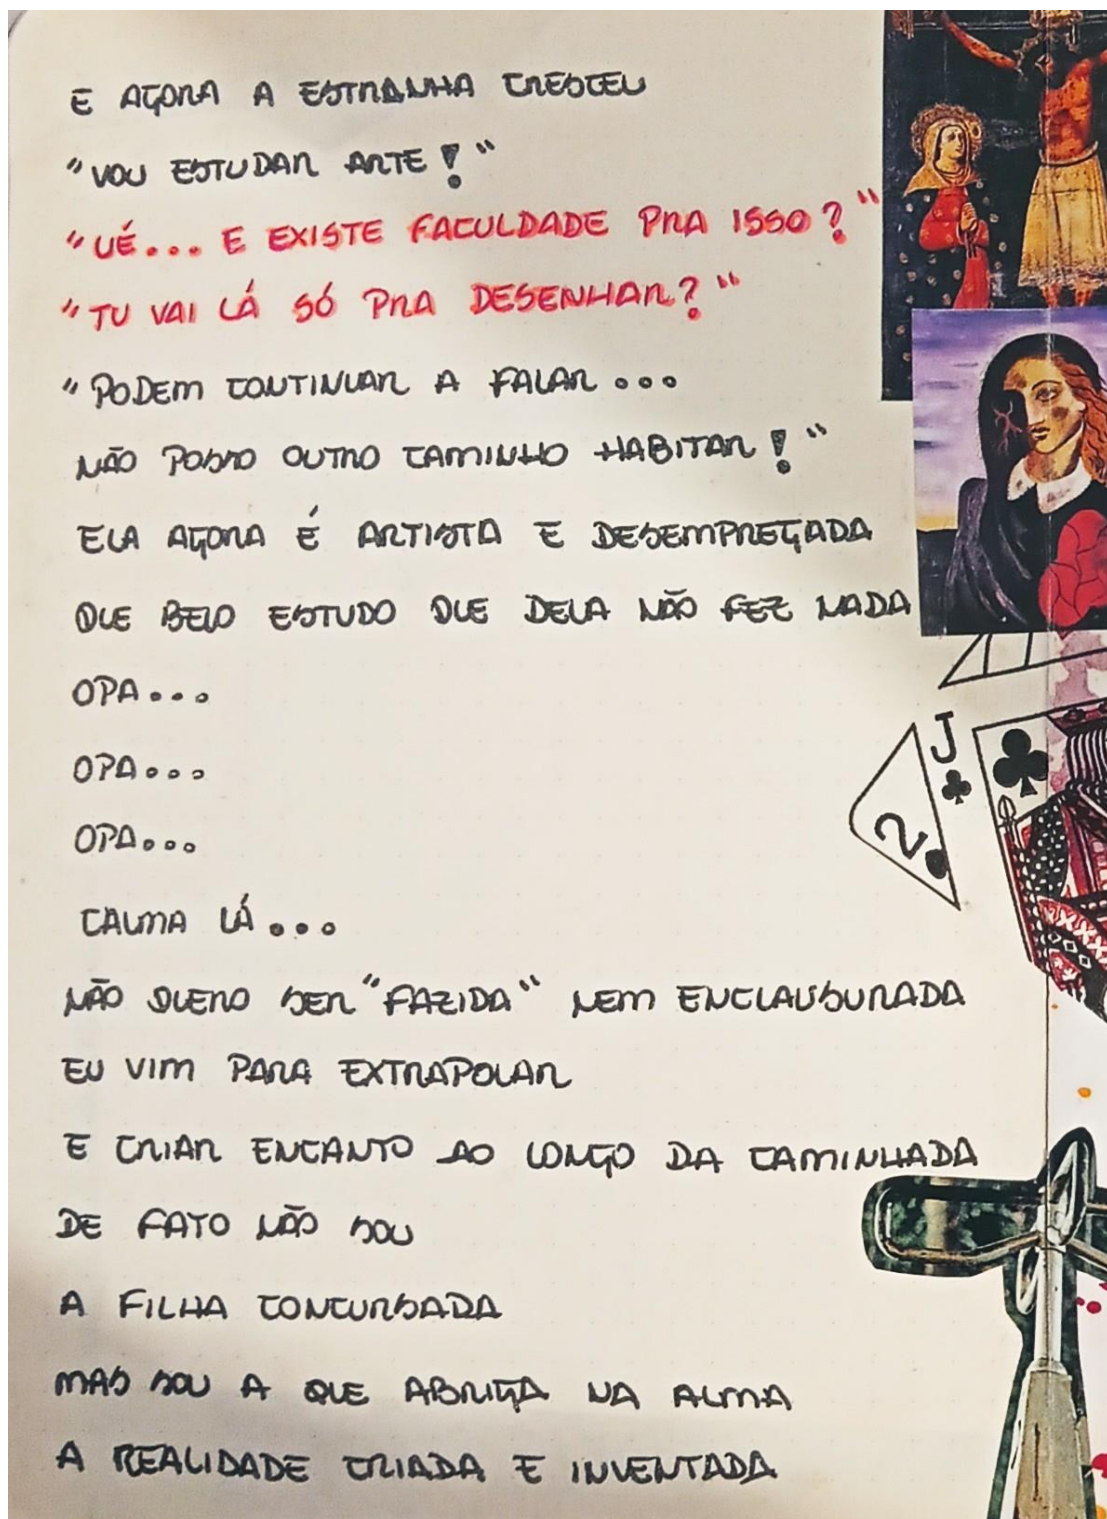 E AGORA A ESTRANHA CRESCEU
"VOU ESTUDAR ARTE!"
"UÉ... E EXISTE FACULDADE PRA ISSO?"
"TU VAI LÁ SÓ PRA DESENHAR?"
"PODEM CONTINUAR A FALAR...
NÃO POSSO OUTRO CAMINHO HABITAR!"
ELA AGORA É ARTISTA E DESEMPREGADA
QUE BELO ESTUDO QUE DELA NÃO FEZ NADA
OPA...
OPA...
OPA...
CALMA LÁ...
NÃO QUERO SER "FAZIDA" NEM ENCLAUSURADA
EU VIM PARA EXTRAPOLAR
E CRIAR ENCANTO AO LONGO DA CAMINHADA
DE FATO NÃO SOU
A FILHA CONCURSADA
MAS SOU A QUE ABRIGA NA ALMA
A REALIDADE CRIADA E INVENTADA
J
2